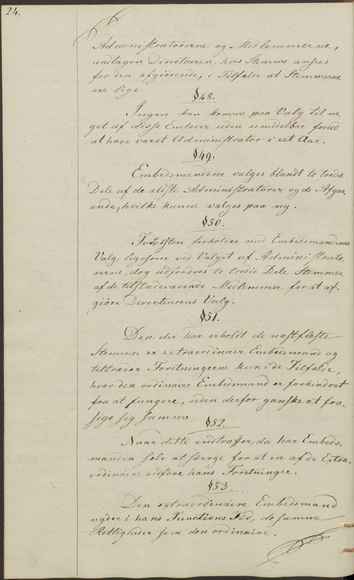 24.
Administratorerne og Medlemmerne,
undtagen Directeuren, hvis Stemme ansees
for den afgiörende, i Tilfælde at Stemmerne
ere lige.
§48.
Ingen kan komme paa Valg til no-
get af disse Embeder uden immidlbar forud
at have været Administrator i eet Aar.
§49.
Embedsmændene vælges blandt to tredie
Dele af de ældste Administratorer og de Afgaa-
ende, hvilke kunne vælges paa ny.
§50.
Forholdes med Embedsmændenes
Valg, ligesom ved Valget af Administrato-
rerne; dog udfordres to tredie Dele Stemmer
af de tilstedeværende Medlemmer for at af-
giöre Directeurens Valg.
§51.
Den, der har erholdt de næstfleste
Stemmer er extraordinair Embedsmand og
tiltræder Forretningerne kun i de Tilfælde,
hvor den ordinaire Embedsmand er forhindret
fra at fungere, uden derfor ganske at fra-
sige sig samme.
§52.
Naar dette indtræffer, da har Embeds-
manden selv at sörge for at en af de Extra-
ordinaire udföre hans Forretninger.
§53.
Den extraordinaire Embedsmand
nyder i hans Functions Tid, de samme
Rettigheder som den ordinaire.